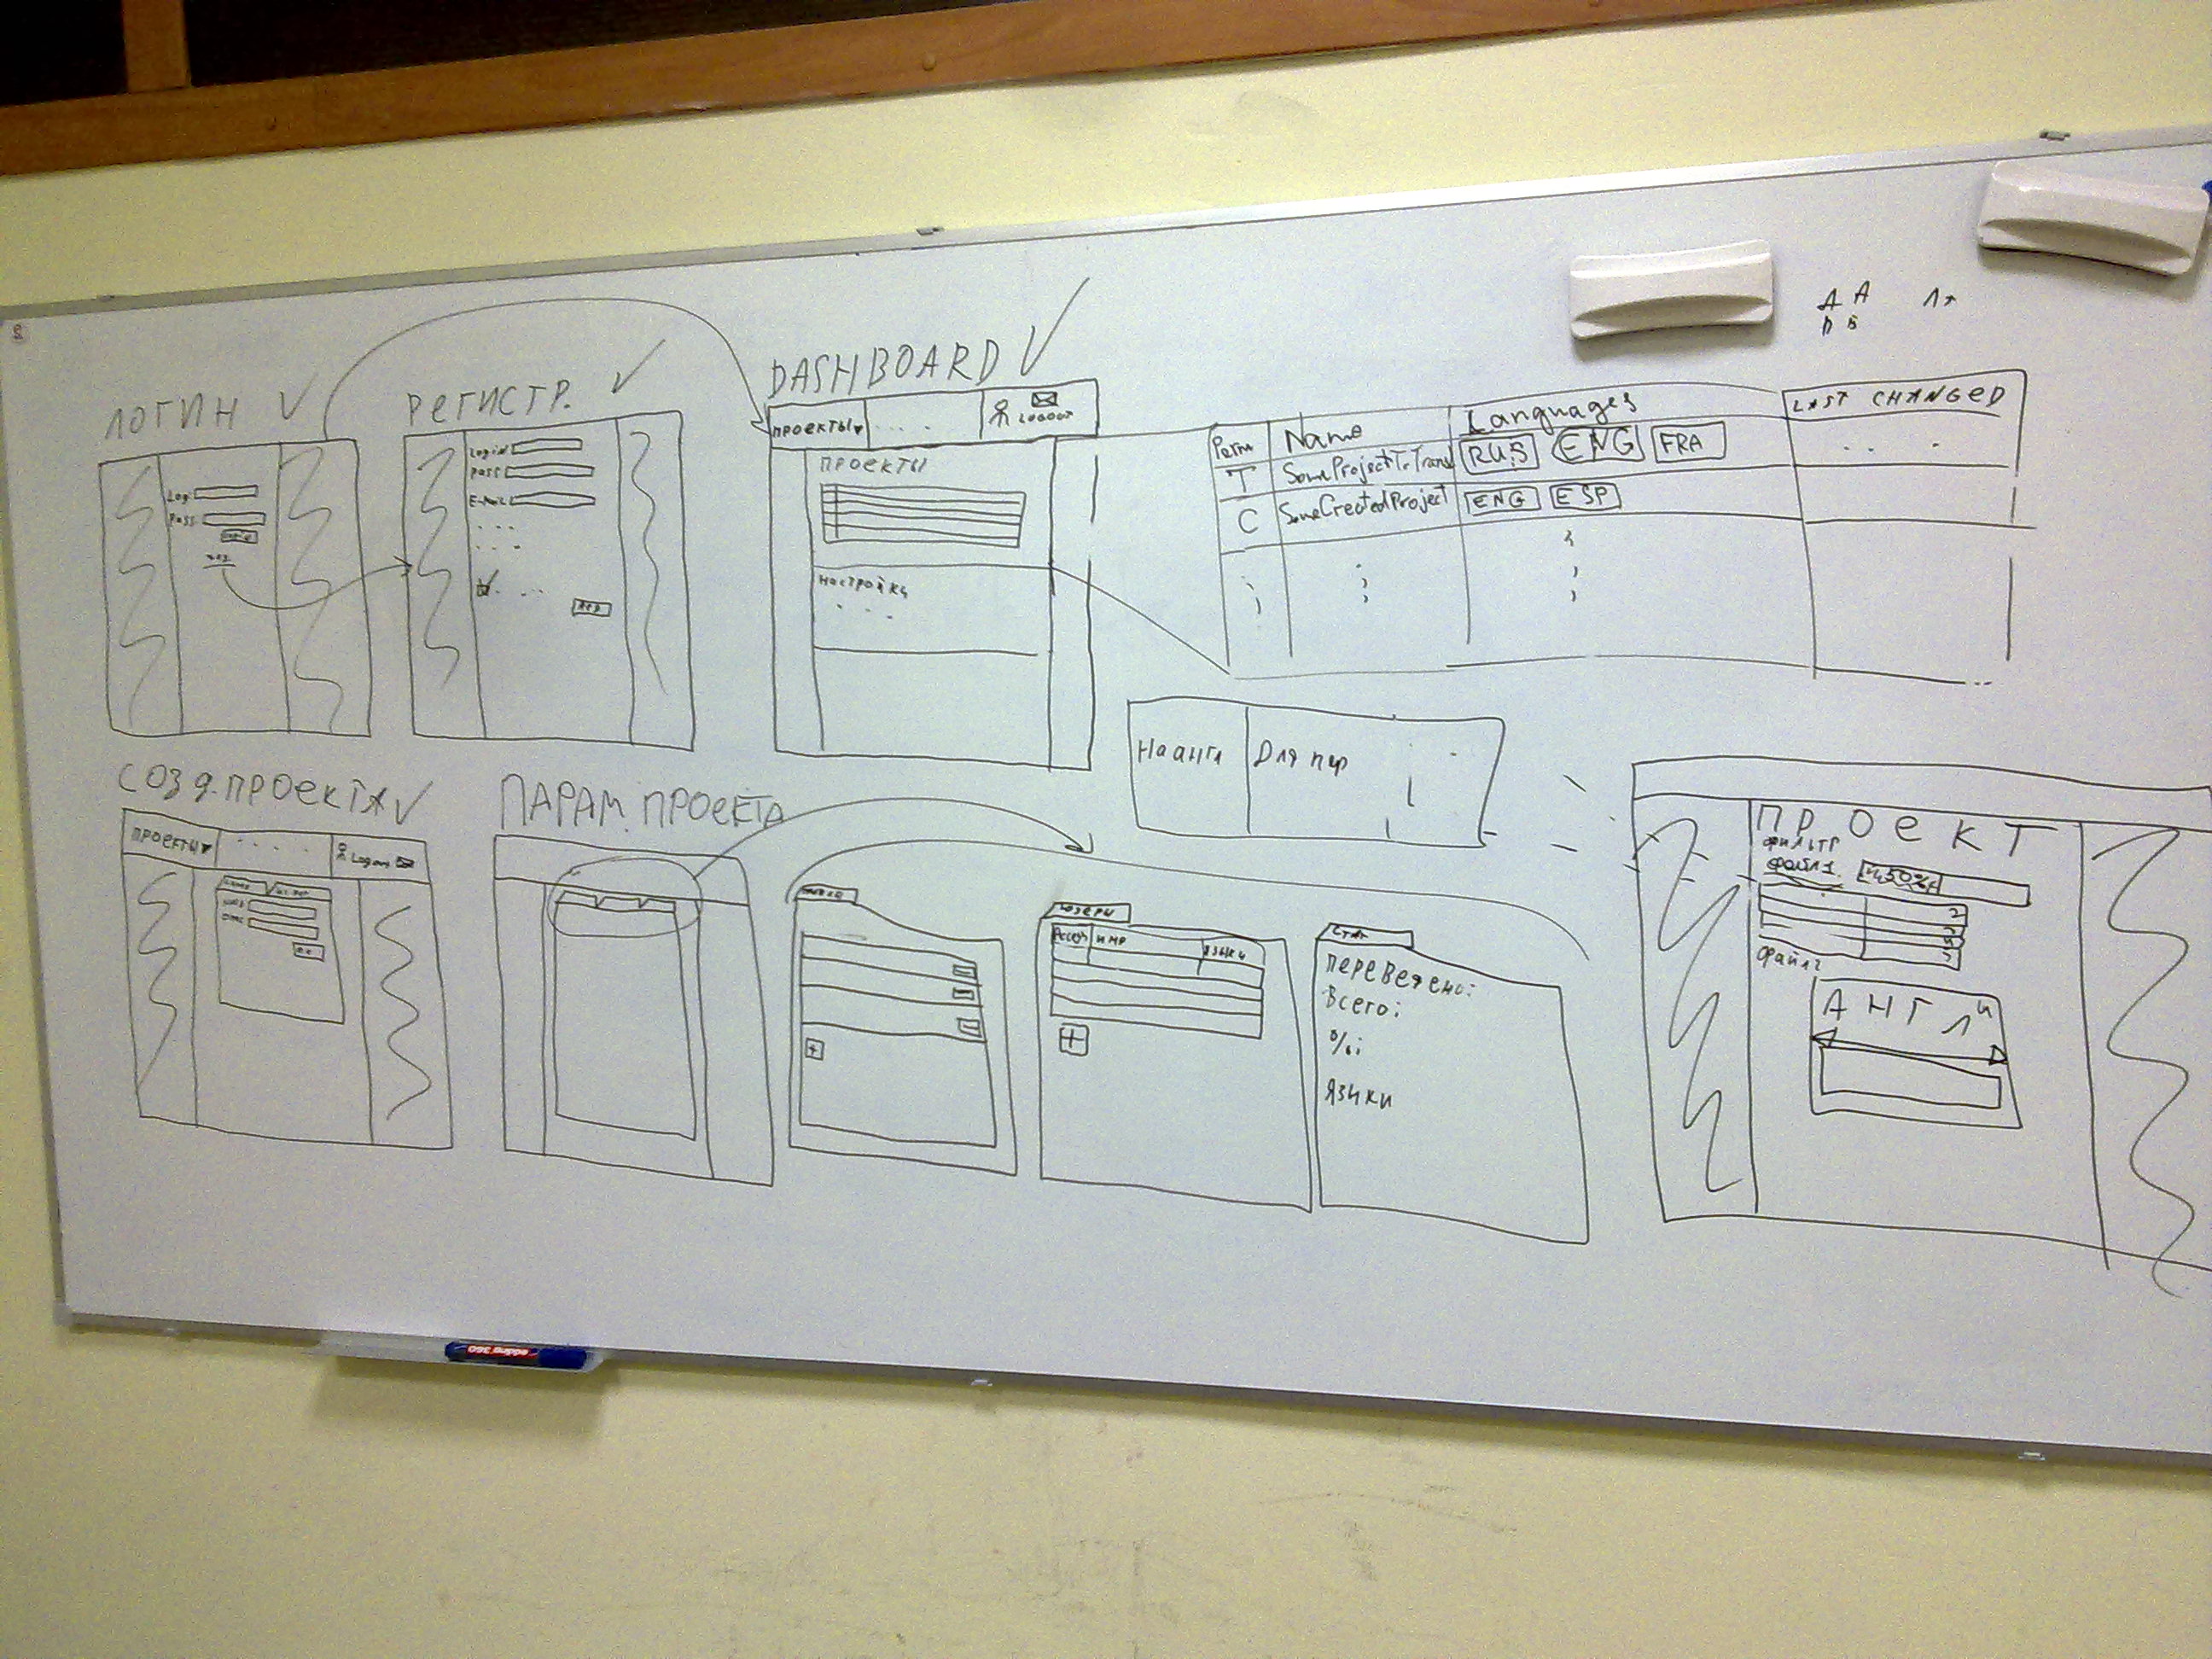 ЛОГИН
Log
Pass
РЕГИСТР.
Login
Pass
E-mail
DASHBOARD
ПРОЕКТЫ
LOGOUT
ПРОЕКТЫ
Настройки
Name
Languages
LAST CHANGED
T
SomeProjectToTransl
RUS
ENG
FRA
C
SomeCreatedProject
ENG
ESP
На англ
Для пер
СОЗД.ПРОЕКТА
ПРОЕКТЫ
Logout
ПАРАМ.ПРОЕКТА
Юзеры
имя
языки
+
+
Стат
Переведено:
Всего:
%:
Языки
ПРОЕКТ
фильтр
файл1.
50%
файл2
АНГЛ
edding 360